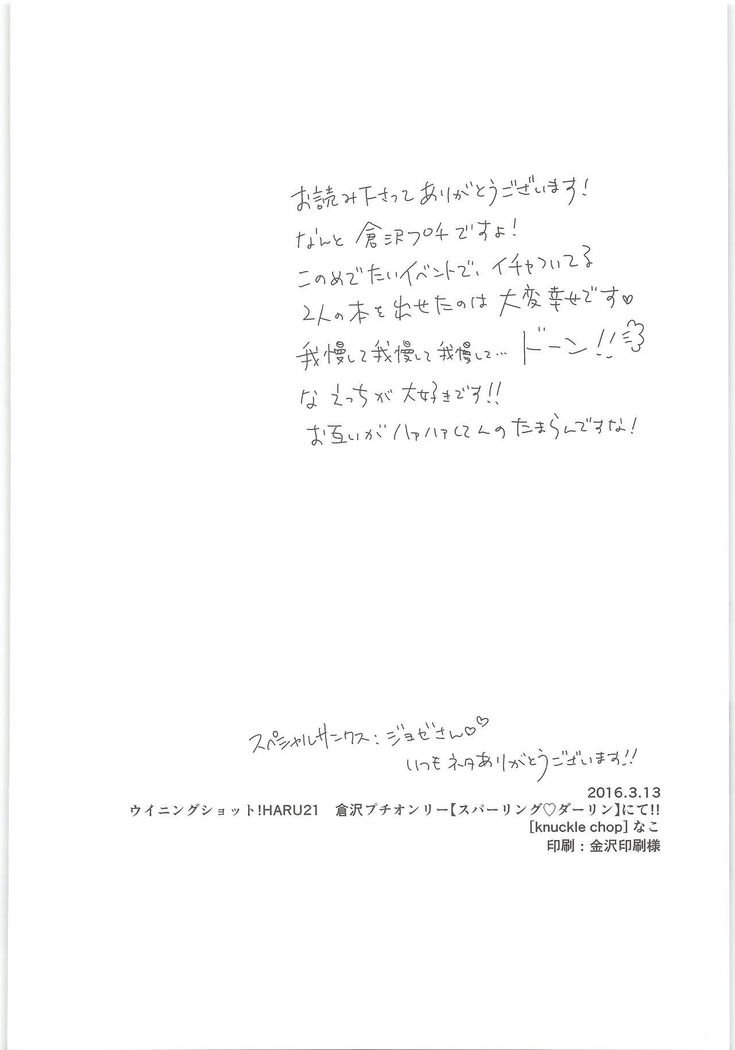 お読み下さってありがとうございます!
なんと倉沢プチですよ!
このめでたいイベントで、イチャついてる
2人の本を出せたのは大変幸せです♡
我慢して我慢して我慢して…ドーン!!
なえっちが大好きです!!
お互いがハァハァしてんのたまらんですな!
スペシャルサンクス:ジョゼさん♡♡
いつもネタありがとうございます!!
2016.3.13
ウイニングショット!HARU21 倉沢プチオンリー【スパーリング♡ダーリン】にて!!
[knuckle chop] なこ
印刷:金沢印刷様